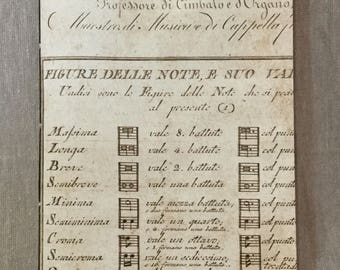 Professore di Cimbalo e d'Organo,
Maestro di Musica e di Cappella
FIGURE DELLE NOTE, E SUO VA
Undici sono le Figure delle Note che si
al presente (1)
Massima vale 8. battute col punto
Longa vale 4. battute col punto
Breve vale 2. battute col punto
Semibreve vale una battuta col punto
Minima vale mezza battuta, col punto
e 2. formano una battuta.
Semiminima vale un quarto, col punto
e 4. formano una battuta.
Croma vale un ottavo, col punto
e 8. formano una battuta.
Semicroma vale un sedicesimo, col punto